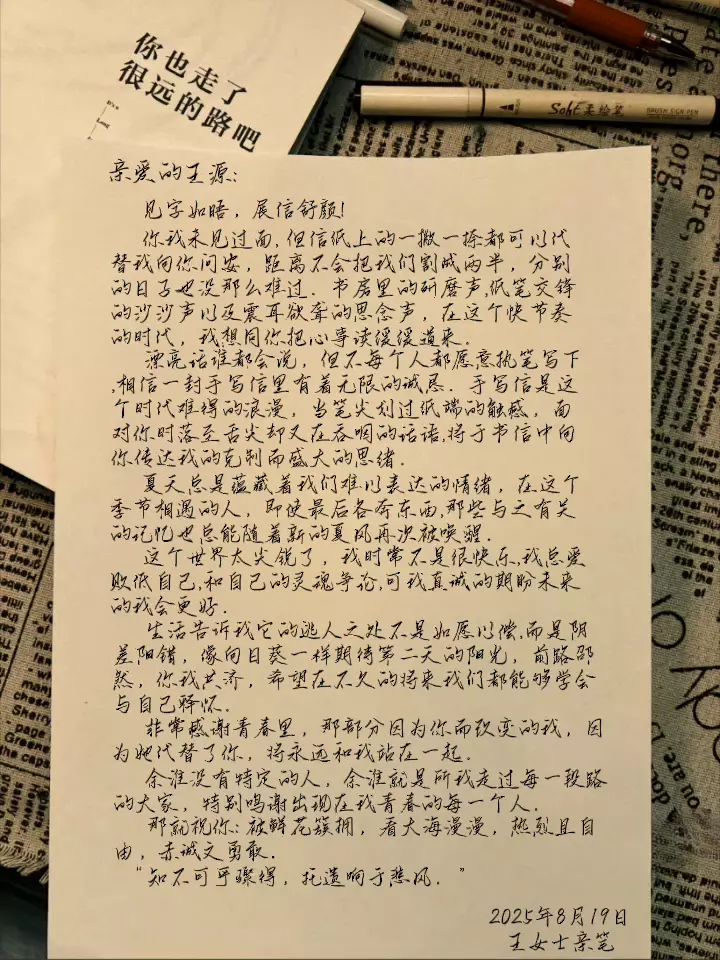 你也走了
很远的路吧
SohE柔绘笔
BRUSH SIGN PEN
亲爱的王源：
见字如晤，展信舒颜！
你我未见过面，但信纸上的一撇一捺都可以代
替我向你问安，距离不会把我们割成两半，分别
的日子也没那么难过．书房里的研磨声，纸笔交锋
的沙沙声以及震耳欲聋的思念声，在这个快节奏
的时代，我想同你把心事读缓缓道来．
漂亮话谁都会说，但不每个人都愿意执笔写下
，相信一封手写信里有着无限的诚恳．手写信是这
个时代难得的浪漫，当笔尖划过纸端的触感，面
对你时落至舌尖却又在吞咽的话语，将于书信中向
你传达我的克制而盛大的思绪．
夏天总是蕴藏着我们难以表达的情绪，在这个
季节相遇的人，即使最后各奔东西，那些与之有关
的记忆也总能随着新的夏风再次被唤醒．
这个世界太尖锐了，我时常不是很快乐，我总爱
贬低自己，和自己的灵魂争论，可我真诚的期盼未来
的我会更好．
生活告诉我它的迷人之处不是如愿以偿，而是阴
差阳错，像向日葵一样期待第二天的阳光，前路邵
然，你我共济，希望在不久的将来我们都能够学会
与自己释怀．
非常感谢青春里，那部分因为你而改变的我，因
为她代替了你，将永远和我站在一起．
余淮没有特定的人，余淮就是所我走过每一段路
的大家，特别鸣谢出现在我青春的每一个人．
那就祝你：被鲜花簇拥，看大海漫漫，热烈且自
由，赤诚又勇敢．
“知不可乎骤得，托遗响于悲风．”
2025年8月19日
王女士亲笔